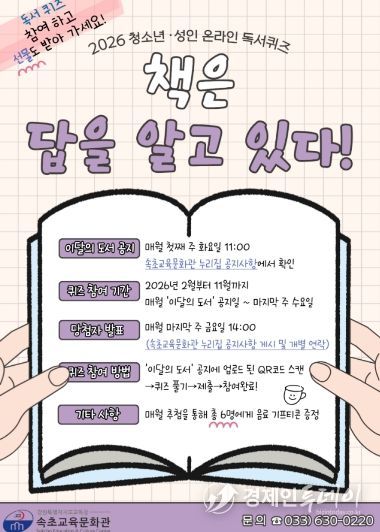 독서 퀴즈
참여 하고
선물도 받아 가세요!
2026 청소년·성인 온라인 독서퀴즈
책은
답을 알고 있다!
이달의 도서 공지 매월 첫째 주 화요일 11:00
속초교육문화관 누리집 공지사항에서 확인
퀴즈 참여 기간 2026년 2월부터 11월까지
매월 '이달의 도서' 공지일 ~ 마지막 주 수요일
당첨자 발표 매월 마지막 주 금요일 14:00
(속초교육문화관 누리집 공지사항 게시 및 개별 연락)
퀴즈 참여 방법 '이달의 도서' 공지에 업로드 된 QR코드 스캔
→퀴즈 풀기→제출→참여완료!
기타 사항 매월 추첨을 통해 총 6명에게 음료 기프티콘 증정
강원특별자치도교육청
속초교육문화관
경제인투데이
문의 ☎ 033) 630-0220